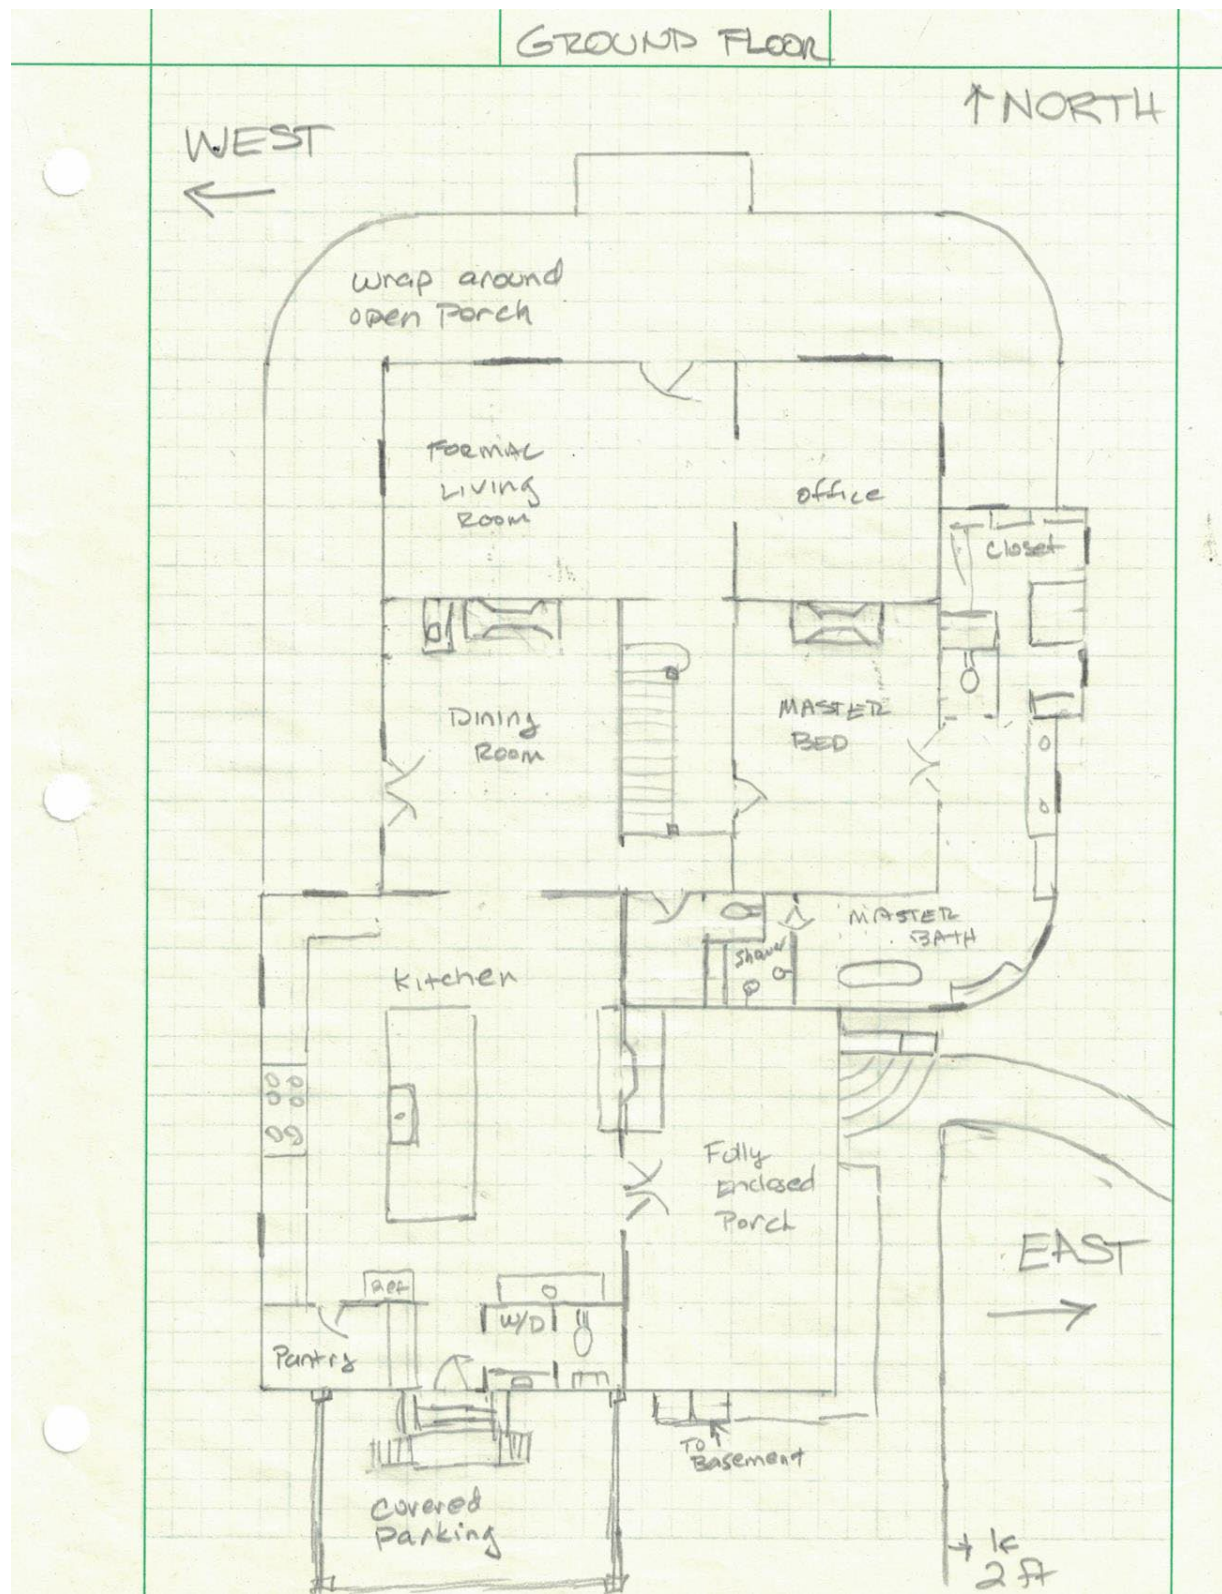 GROUND FLOOR
↑ NORTH
WEST
←
wrap around
open Porch
FORMAL
LIVING
ROOM
office
Closet
Dining
ROOM
MASTER
BED
MASTER
BATH
Shower
Kitchen
Fully
Enclosed
Porch
EAST
→
Ref
W/D
Pantry
TO
Basement
Covered
Parking
2 ft